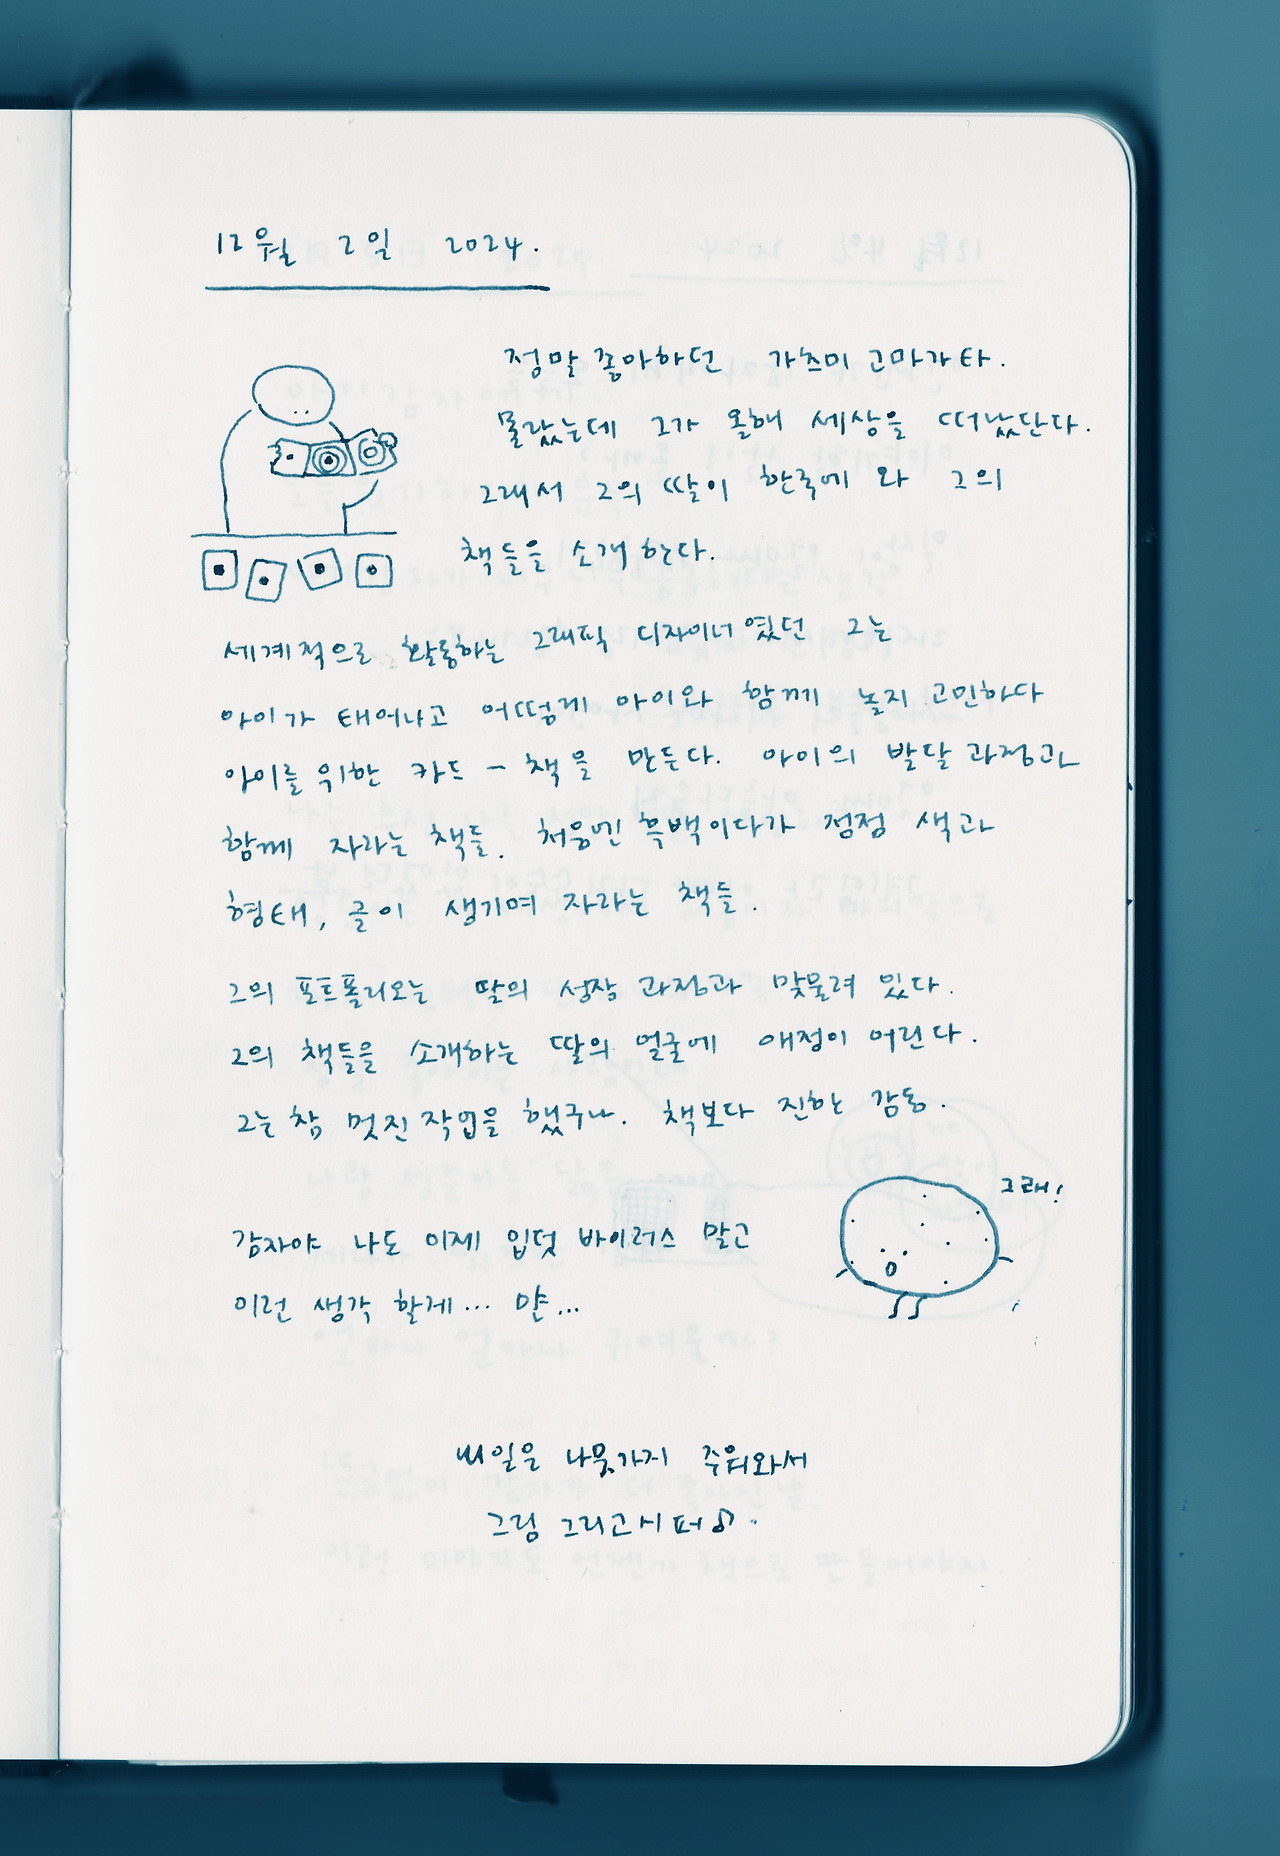 12월 2일 2024.
정말 좋아하던 가츠미 고마가타.
몰랐는데 그가 올해 세상을 떠났단다.
그래서 그의 딸이 한국에 와 그의
책들을 소개한다.
세계적으로 활동하는 그래픽 디자이너였던 그는
아이가 태어나고 어떻게 아이와 함께 놀지 고민하다
아이를 위한 카드 - 책을 만든다. 아이의 발달과정과
함께 자라는 책들. 처음엔 흑백이다가 점점 색과
형태, 글이 생기며 자라는 책들.
그의 포트폴리오는 딸의 성장 과정과 맞물려 있다.
그의 책들을 소개하는 딸의 얼굴에 애정이 어린다.
그는 참 멋진 작업을 했구나. 책보다 진한 감동.
그래!
감자야 나도 이제 입덧 바이러스 말고
이런 생각 할게... 먄...
내일은 나뭇가지 주워와서
그림 그리고시퍼♪.